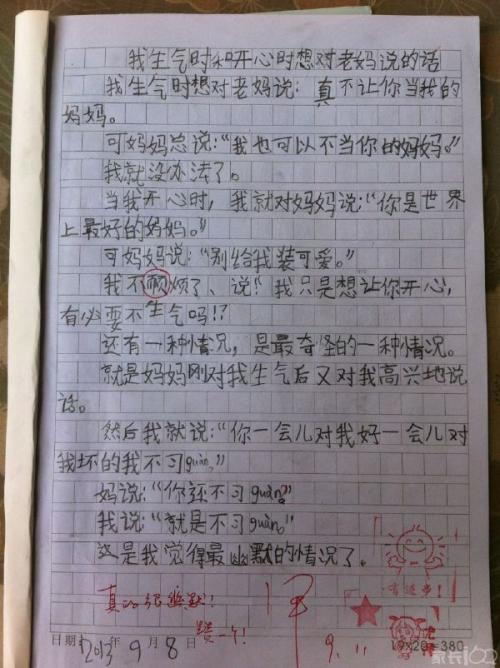 我生气时和开心时想对老妈说的话
我生气时想对老妈说：真不让你当我的
妈妈。
可妈妈总说：“我也可以不当你的妈妈。”
我就没办法了。
当我开心时，我就对妈妈说：“你是世界
上最好的妈妈。”
可妈妈说：“别给我装可爱。”
我不烦了、说“我只是想让你开心，
有必要不生气吗！？
还有一种情况，是最奇怪的一种情况。
就是妈妈刚对我生气后又对我高兴地说
话。
然后我就说：“你一会儿对我好一会儿对
我坏的我不习guàn”
妈说：“你还不习guàn”
我说：“就是不习guàn”
这是我觉得最幽默的情况了。
有进步！
真的很幽默！
赞一个！
9.11
日期：2013年9月8日
19×20=380